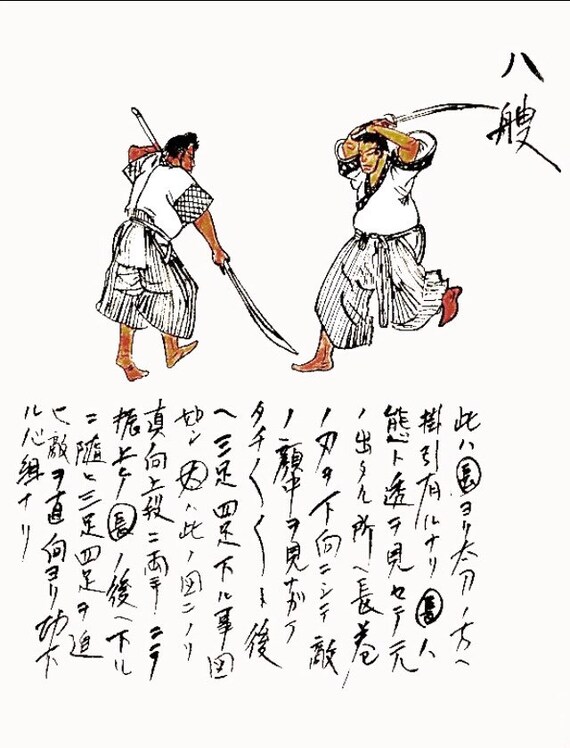 八艘
此ハ長ヨリ太刀ノ方ヘ
掛引有ルナリ長ハ
態ト透ヲ見セテ元
ノ出タル所ヘ長巻
ノ刃ヲ下向ニシテ敵
ノ顔中ヲ見ナガラ
タチ〱〱ト後
ヘ三足四足下ル事図
如シ太ハ此ノ図ニノリ
真向上段ニ両手ニテ
振上ゲ長ノ後ヘ下ル
ニ随ヒ三足四足ヲ追
ヒ敵ヲ直向ヨリ切下
ル心組ナリ